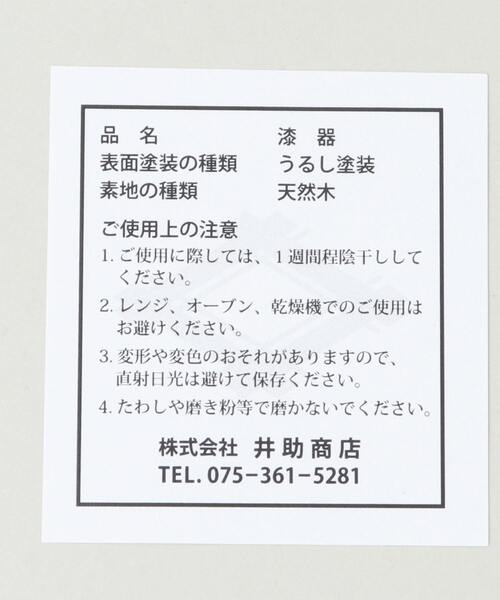 品　名　　　　　漆　器
表面塗装の種類　　うるし塗装
素地の種類　　　　天然木
ご使用上の注意
1. ご使用に際しては、１週間程陰干しして
ください。
2. レンジ、オーブン、乾燥機でのご使用は
お避けください。
3. 変形や変色のおそれがありますので、
直射日光は避けて保存ください。
4. たわしや磨き粉等で磨かないでください。
株式会社 井助商店
TEL. 075−361−5281